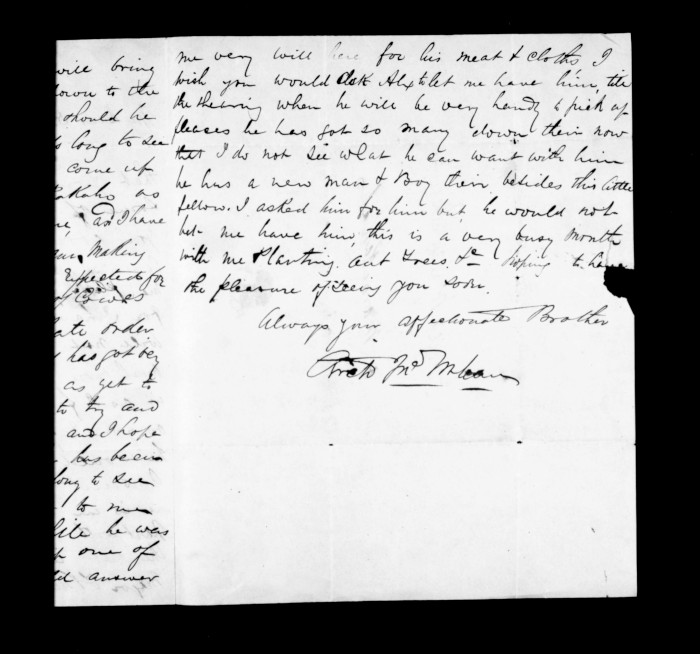 will bring
down to the
should he
long to see
come up
as
and I have
Making
Expected for
Ewes
ate order
has got very
as get to
to try and
and I hope
has been
long to see
to me
file he was
one of
answer
me very will here for his meat & cloths I
wish you would ask Alex to let me have him, till
the shearing when he will be very handy to pick up
fleeces he has got so many down their now
that I do not see what he can want with him
he has a new man & Boy their, besides this little
fellow. I asked him for him but he would not
let me have him, this is a very busy month
with me Planting out Trees &c Hoping to have
the pleasure of seeing you soon.
Always your affectionate Brother
Archd Jno McLean